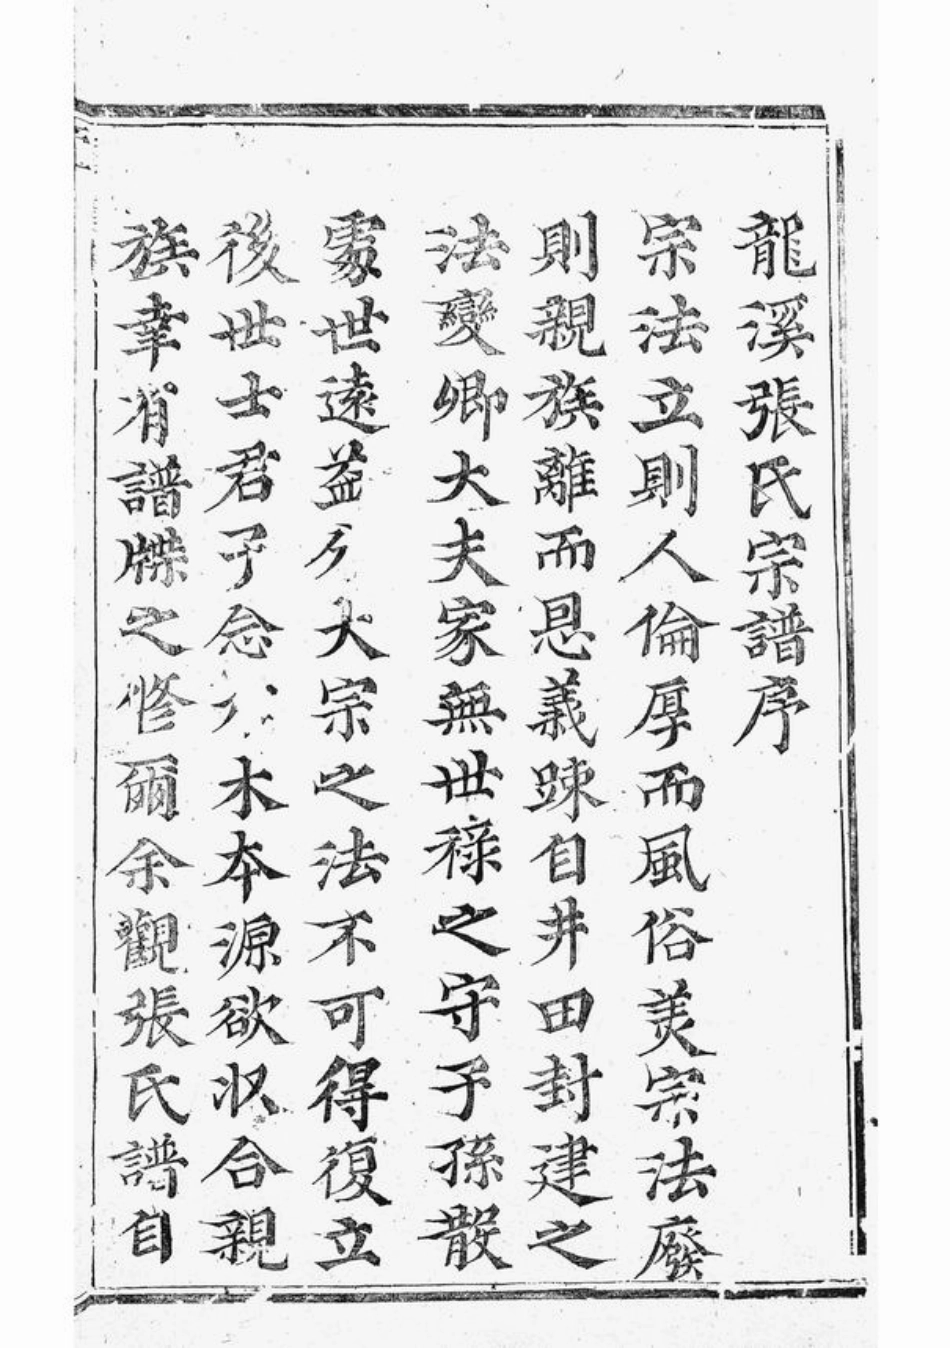 龍溪張氏宗譜序
宗法立則人倫厚而風俗美宗法廢
則親族離而恩義踈自井田封建之
法變卿大夫家無世祿之守子孫散
處世遠益分大宗之法不可得復立
後世士君子念木本源欲収合親
族幸有譜牒之修爾余觀張氏譜自